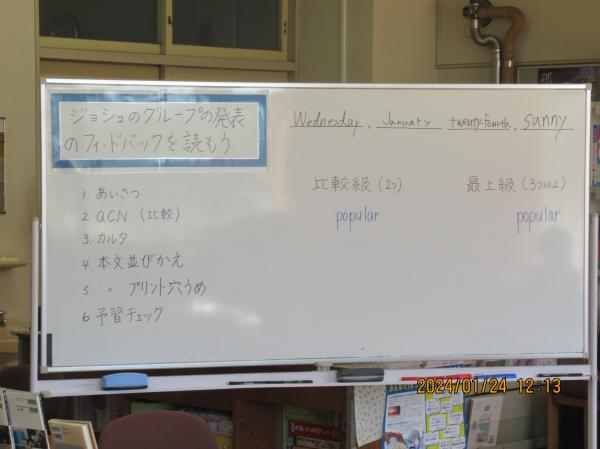 ジョシュのグループの発表
のフィードバックを読もう
Wednesday, January twenty-fourth, sunny
1. あいさつ
2. QCN (比較)
3. カルタ
4. 本文並びかえ
5. 〃 プリント穴うめ
6. 予習チェック
比較級(2つ)
popular
最上級(3つ以上)
popular
2024/01/24 12:13